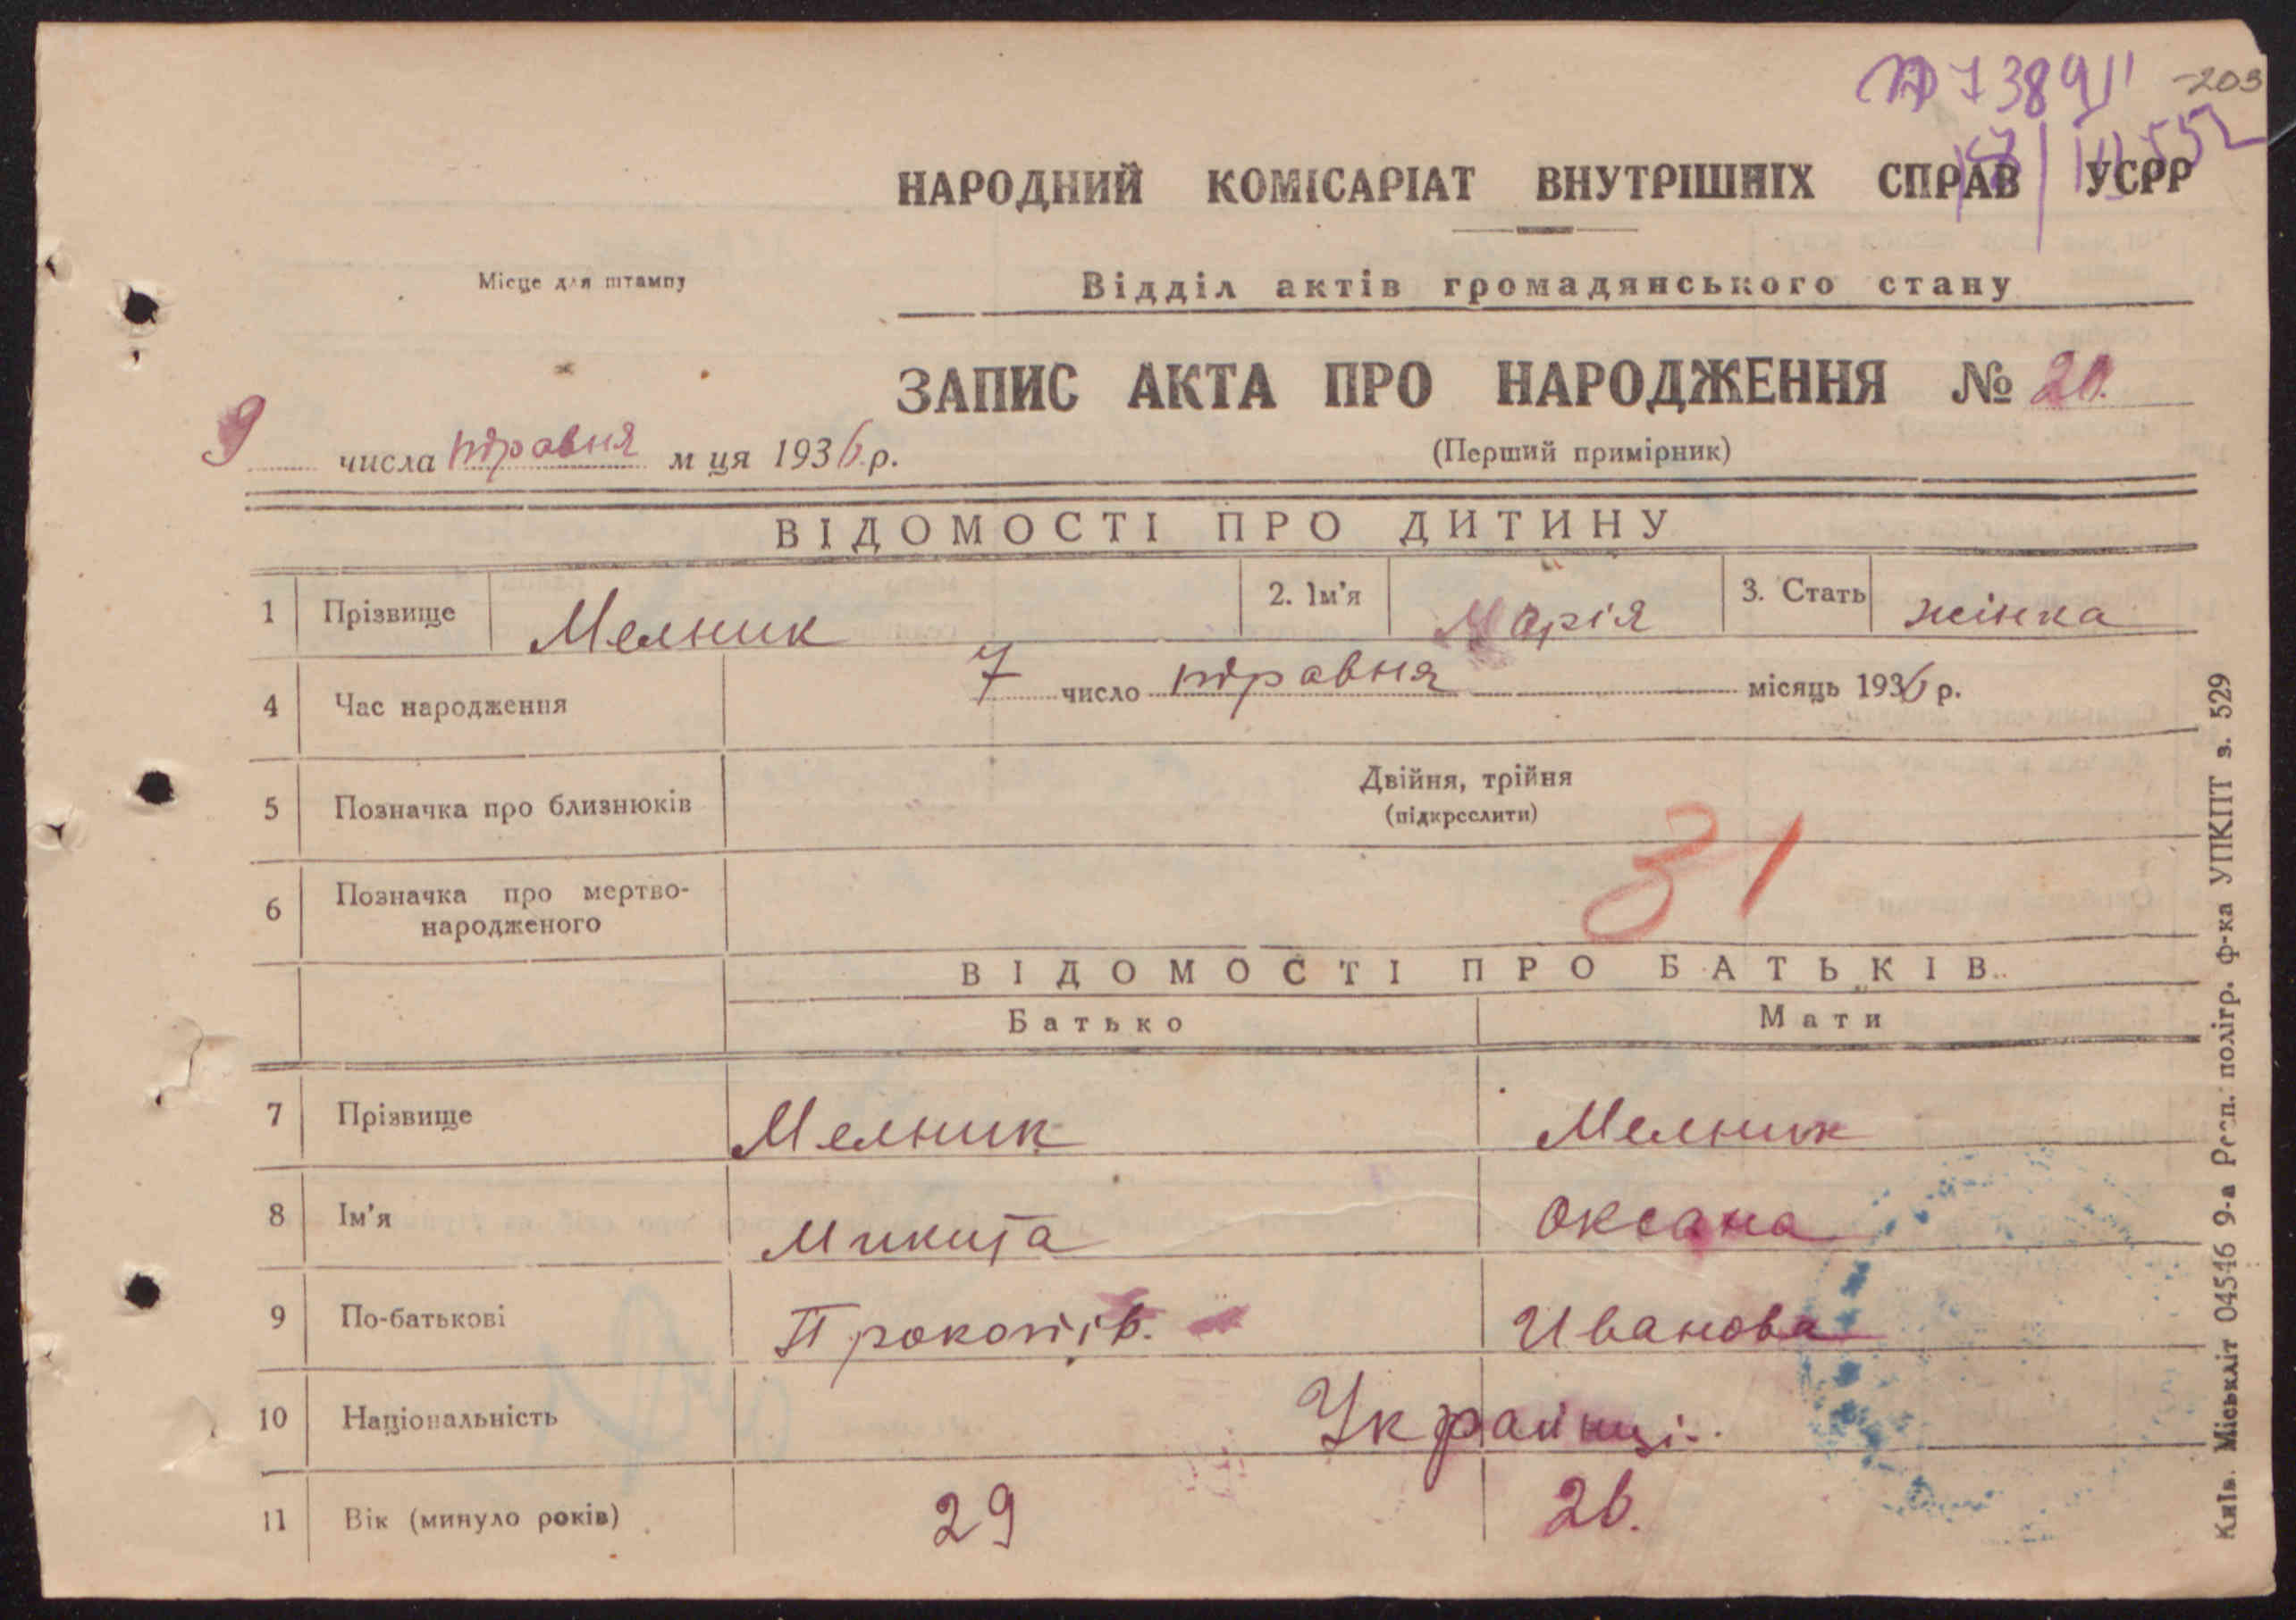 203
НАРОДНИЙ КОМІСАРІАТ ВНУТРІШНІХ СПРАВ УСРР
Місце для штампу
Відділ актів громадянського стану
ЗАПИС АКТА ПРО НАРОДЖЕННЯ № 20.
9 числа травня м ця 1936 р.
(Перший примірник)
ВІДОМОСТІ ПРО ДИТИНУ
1 Прізвище Мелник 2. Ім'я Марія 3. Стать жінка
4 Час народження 7 число травня місяць 1936 р.
5 Позначка про близнюків Двійня, трійня
(підкреслити)
31
6 Позначка про мертво-
народженого
ВІДОМОСТІ ПРО БАТЬКІВ
Батько Мати
7 Прізвище Мелник Мелник
8 Ім'я Микита Оксана
9 По-батькові Прокопів. Иванова
10 Національність Украинці.
11 Вік (минуло років) 29 26.
Київ. Міськліт 04546 9-а Респ. полігр. ф-ка УПКПТ з. 529